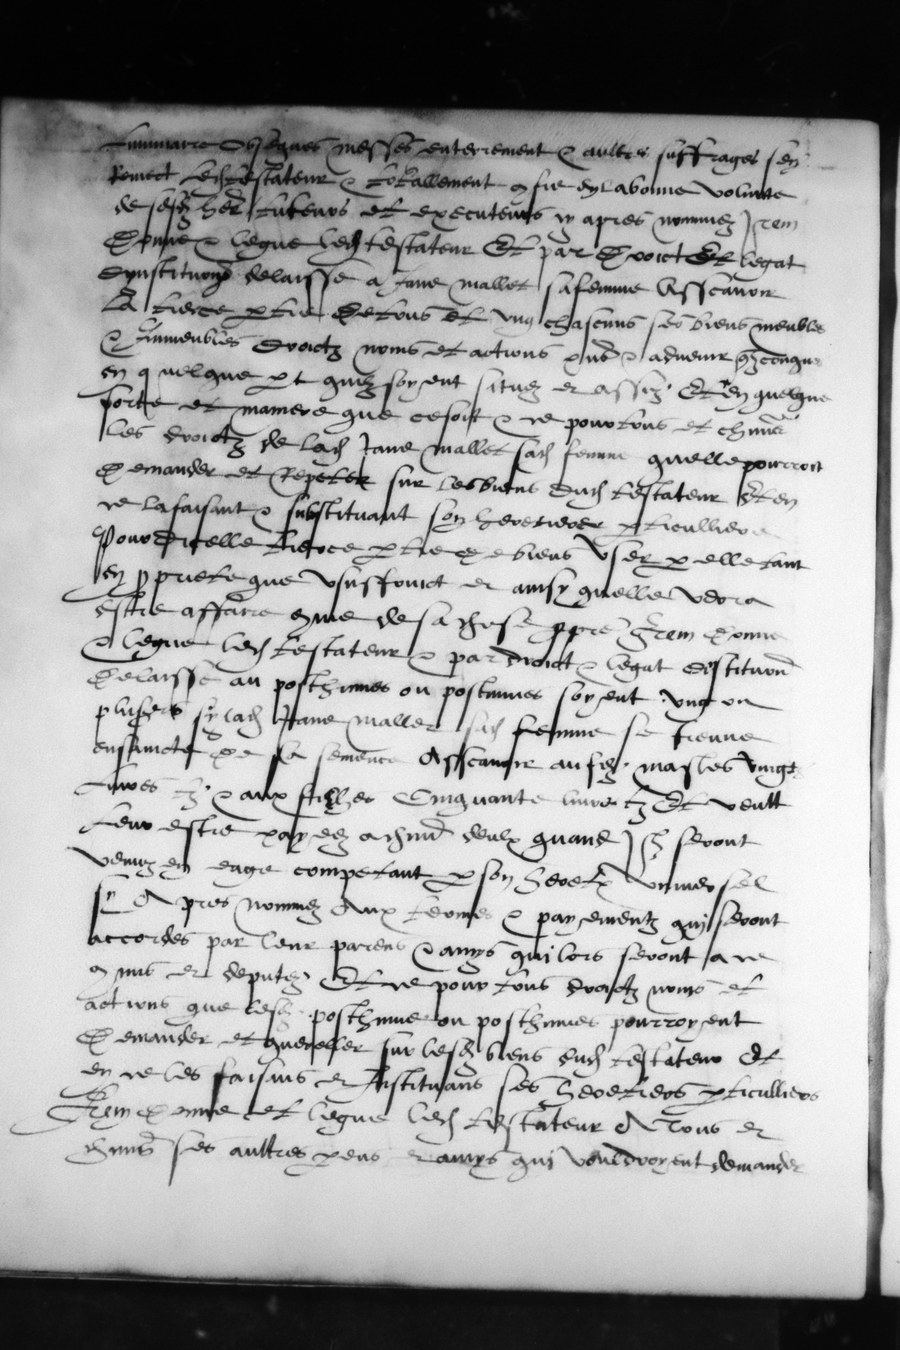 luminaire obseques messes enterrement & aultres suffrages sen
remect led testateur & totallement confie en la bonne volunte
de sesd her tuteurs et executeurs cy apres nommez Item
Donne & legue led testateur Et par droict Et legat
dinstitution delaisse a Jane mallet sa femme Asscavoir
La tierce ptie De tous Et ung chascuns ses biens meubles
& Immeubles droictz noms et actions pns & advenir
en quelque pt quilz soyent situez et assiz Et en quelque
sorte et maniere que ce soit & ce pour tous et chuns
les droictz de lad Jane mallet sad femme quelle pourroit
Demander et Repeter sur les biens dud testateur Et en
ce la faisant & substituant son heretiere pticulliere
Pour dicelle tierce ptie de biens User p elle tant
en propriete que Usuffruict et ainsy quelle vdra
Estre affaire come de sa chose ppre Item Donne
& legue led testateur & par droict & legat distitution
Delaisse au posthumes ou postumes soyent ung ou
plusieurs sy lad Jane mallet sad femme se treuve
ensaincte de sa semence Asscavoir au filz masles Vingt
livres tz & aux filhes Cinquante livres tz Et veult
leur estre payez a chun deulx quand Ilz seront
venuz en eage competant p son heretier universel
sy Apres nommez Aux termes & payementz qui seront
accordes par leur parens & amys qui lors seront a ce
comis et deputez Et ce pour tous droictz noms et
actions que lesd posthume ou posthumes pourroyent
Demander et quereller sur lesd biens dud testateur Et
en ce les faisans et Instituans ses heretiers pticulliers
Item Donne et legue led testateur A Tous et
chuns ses aultres pens et amys qui vouldroyent demander